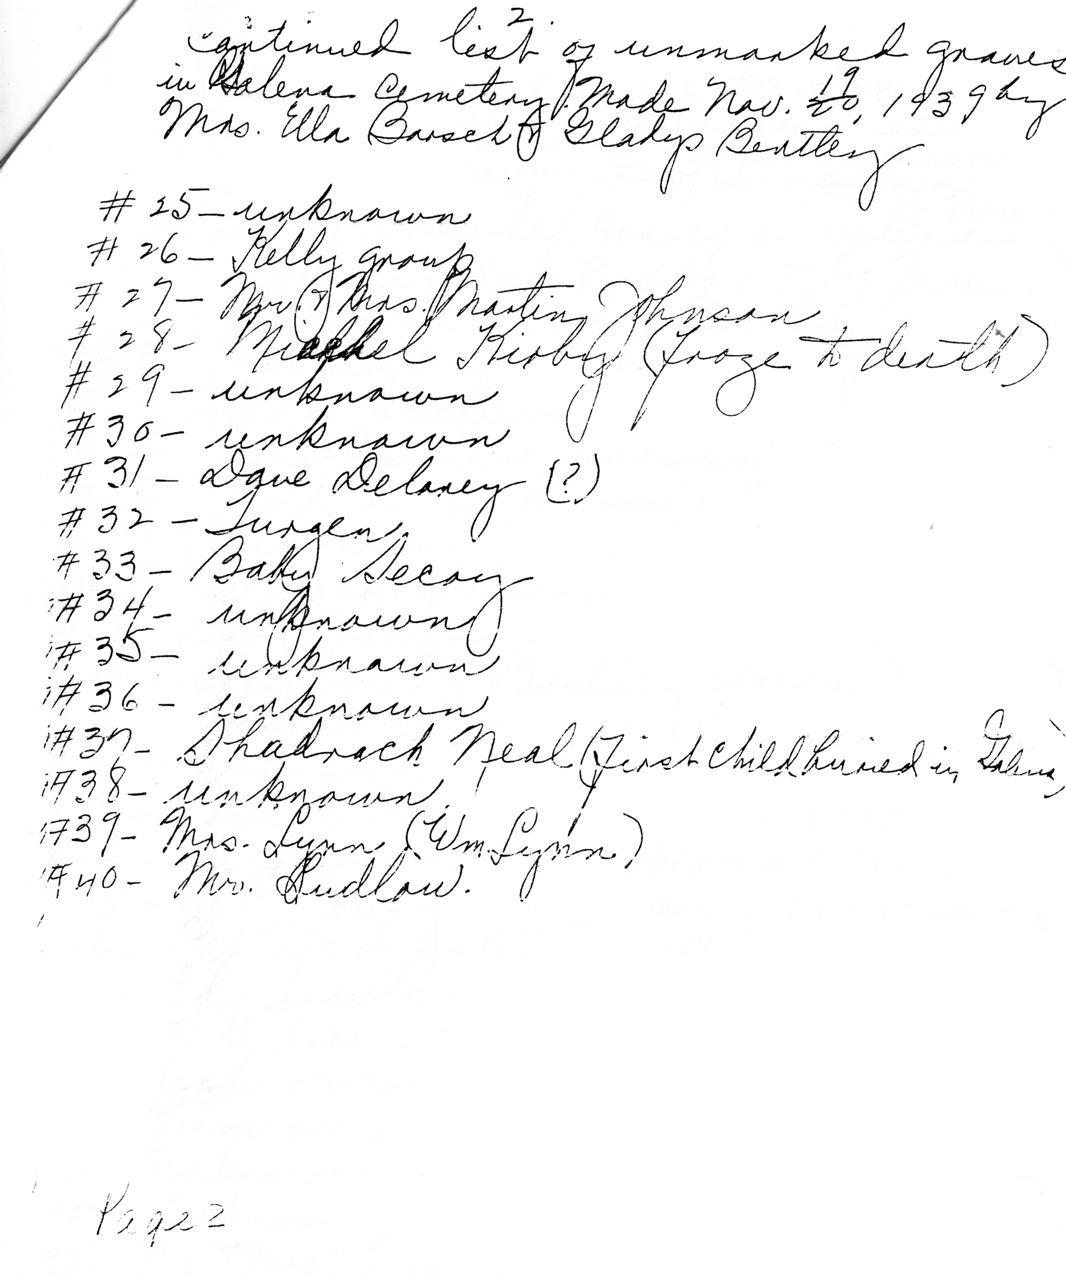 2.
Continued list of unmarked graves
in Galena Cemetery. Made Nov. 19 20, 1939 by
Mrs. Ella Borsch & Gladys Bentley
# 25 - unknown
# 26 - Kelly group
# 27 - Mr. & Mrs. Martin Johnson
# 28 - Michel Kirby (froze to death)
# 29 - unknown
# 30 - unknown
# 31 - Dave Delaney (?)
# 32 -
# 33 - Baby Secoy
# 34 - unknown
# 35 - unknown
# 36 - unknown
# 37 - Shadrach Neal (first child buried in Galena)
# 38 - unknown
# 39 - Mrs. Lynn (Wm. Lynn)
# 40 - Mr. Ludlow.
Page 2